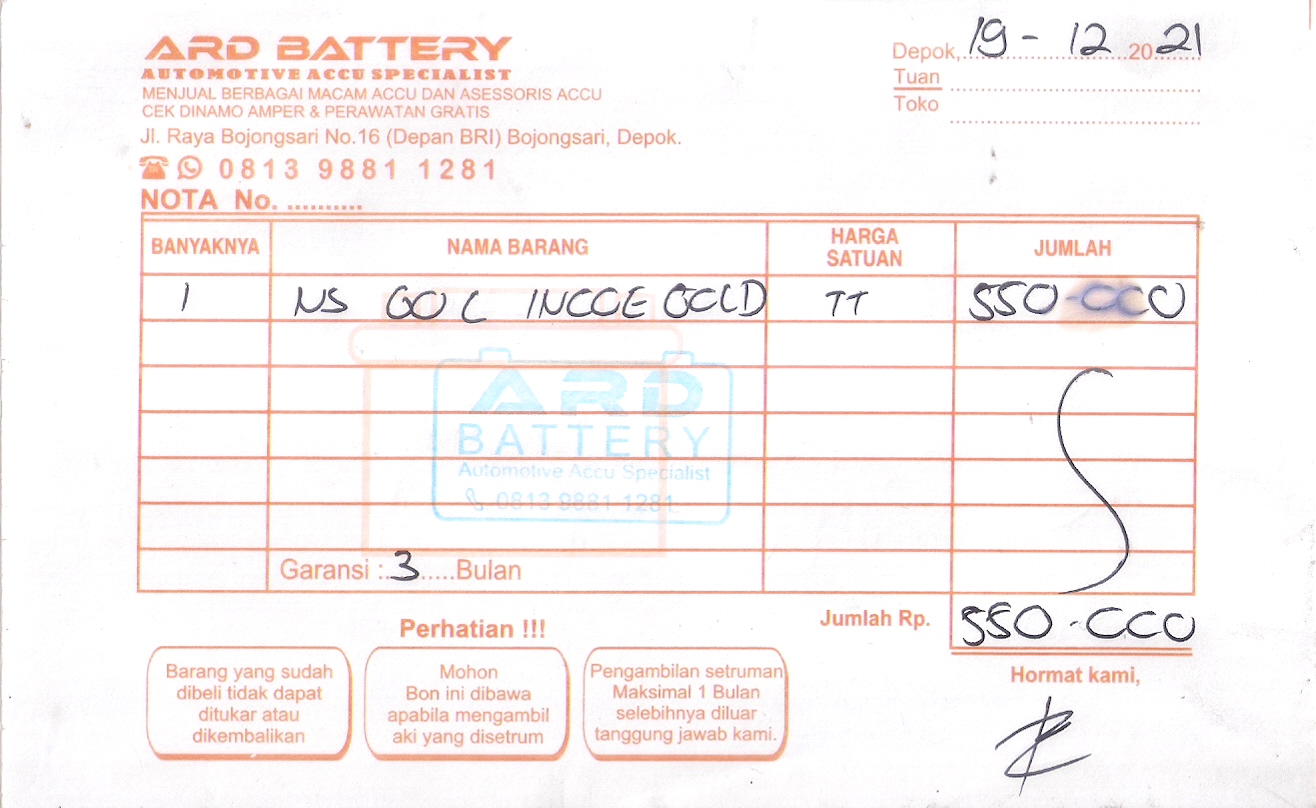 ARD BATTERY
AUTOMOTIVE ACCU SPECIALIST
MENJUAL BERBAGAI MACAM ACCU DAN ASESSORIS ACCU
CEK DINAMO AMPER & PERAWATAN GRATIS
Jl. Raya Bojongsari No.16 (Depan BRI) Bojongsari, Depok.
0813 9881 1281
NOTA No. ..........
Depok, 19 - 12 2021
Tuan
Toko
BANYAKNYA NAMA BARANG HARGA SATUAN JUMLAH
1 NS 60 L INCOE GOLD TT 550-000
ARD
BATTERY
Automotive Accu Specialist
0813 9881 1281
Garansi : 3 Bulan
Jumlah Rp. 550-000
Perhatian !!!
Barang yang sudah
dibeli tidak dapat
ditukar atau
dikembalikan
Mohon
Bon ini dibawa
apabila mengambil
aki yang disetrum
Pengambilan setruman
Maksimal 1 Bulan
selebihnya diluar
tanggung jawab kami.
Hormat kami,